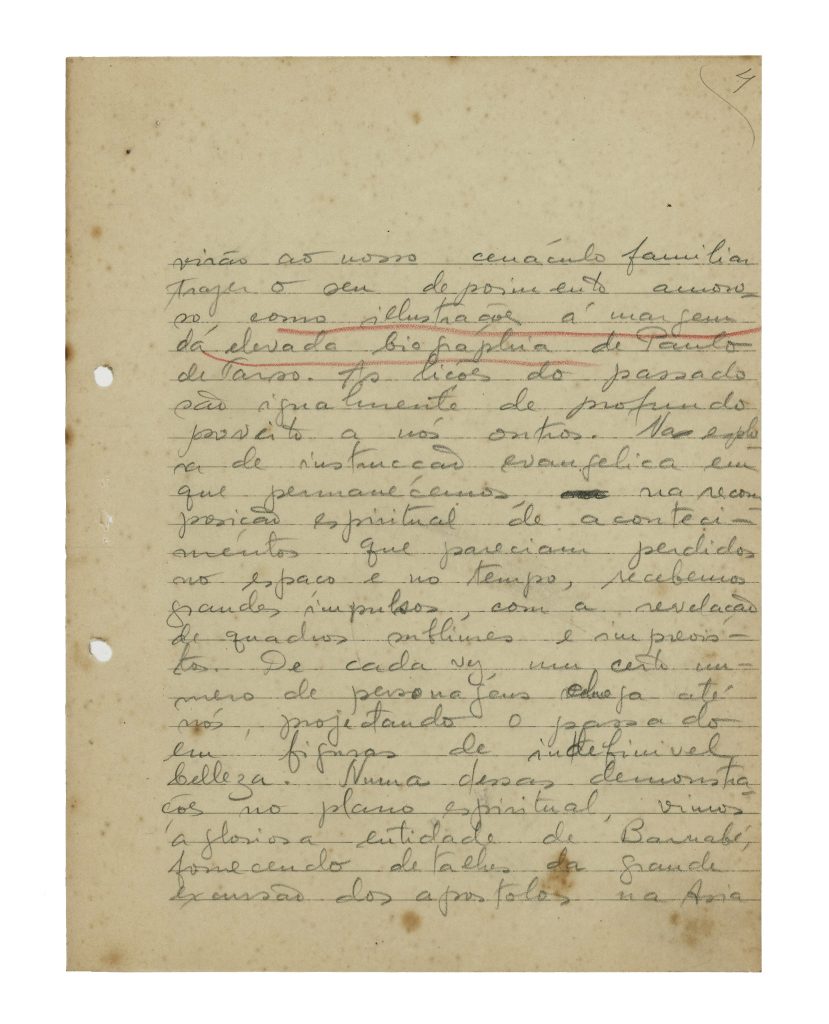 4
virão ao nosso cenáculo familiar
trazer o seu depoimento amoro-
so, como illustrações á margem
da elevada biographia de Paulo
de Tarso. As licões do passado
são igualmente de profundo
poveito a nós outros. Na esphe-
ra de instrucção evangelica em
que permanecemos, na recom-
posição espiritual de aconteci-
mentos que pareciam perdidos
no espaço e no tempo, recebemos
grandes impulsos, com a revelação
de quadros sublimes e imprevis-
tos. De cada vez, um certo nu-
mero de personagens chega até
nós, projectando o passado
em figuras de indefinivel
belleza. Numa dessas demonstra-
ções no plano espiritual, vimos
a gloriosa entidade de Barnabé,
fornecendo detalhes da grande
excursão dos apostolos na Asia